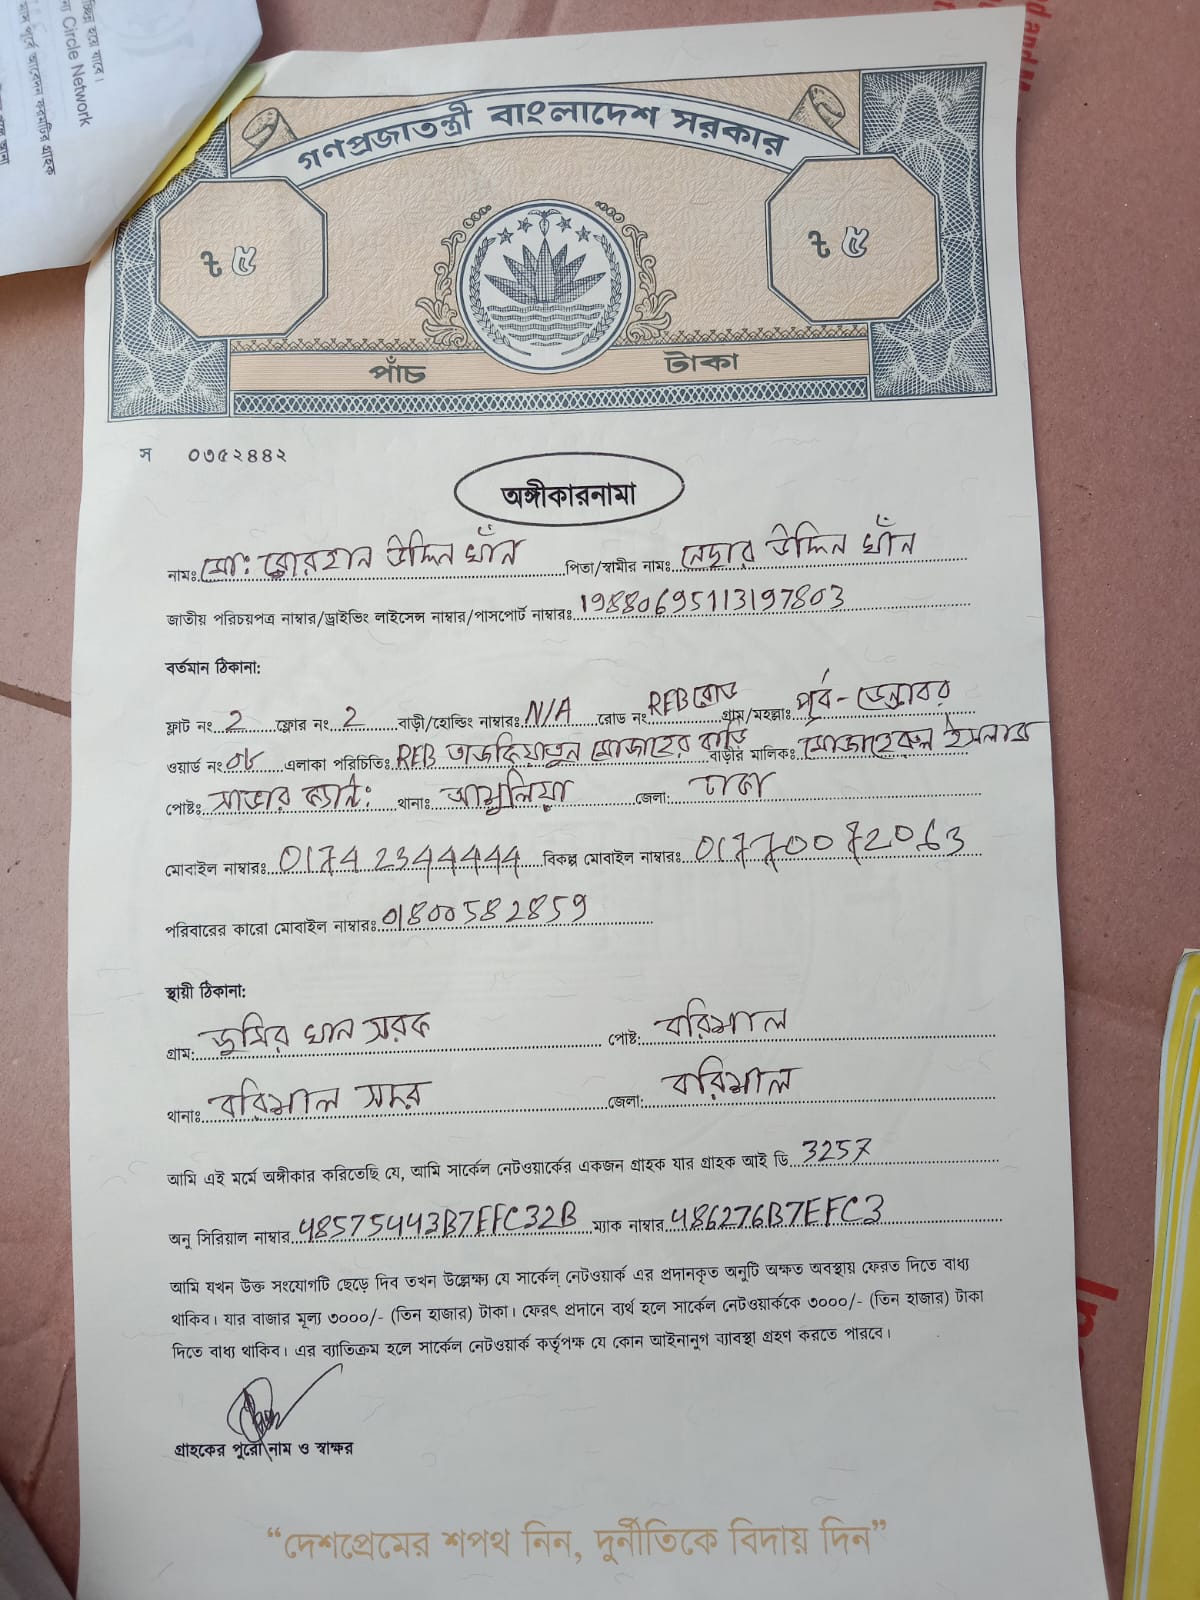 চ্ছিন্ন হয়ে যাবে।
Circle Network
মাস পূর্বে আবেদন ফরমটির গ্রাহক
গণপ্রজাতন্ত্রী বাংলাদেশ সরকার
৳ ৫
৳ ৫
পাঁচ টাকা
স ০৩৫২৪৪২
অঙ্গীকারনামা
নামঃ মোঃ বোরহান উদ্দিন খাঁন পিতা/স্বামীর নামঃ নেছার উদ্দিন খাঁন
জাতীয় পরিচয়পত্র নাম্বার/ড্রাইভিং লাইসেন্স নাম্বার/পাসপোর্ট নাম্বারঃ 19880695113197803
বর্তমান ঠিকানা:
ফ্লাট নং 2 ফ্লোর নং 2 বাড়ী/হোল্ডিং নাম্বারঃ N/A রোড নং REB রোড গ্রাম/মহল্লাঃ পূর্ব- ডেন্ডাবর
ওয়ার্ড নং ০৮ এলাকা পরিচিতিঃ REB তাজকিয়াতুন মোজাহের বাড়ি বাড়ীর মালিকঃ মোজাহেরুল ইসলাম
পোষ্টঃ সাভার ক্যান্ট: থানাঃ আশুলিয়া জেলা: ঢাকা
মোবাইল নাম্বারঃ 01742344444 বিকল্প মোবাইল নাম্বারঃ 01770072063
পরিবারের কারো মোবাইল নাম্বারঃ 01800582859
স্থায়ী ঠিকানা:
গ্রাম: জুমির খান সরক পোষ্ট: বরিশাল
থানাঃ বরিশাল সদর জেলা: বরিশাল
আমি এই মর্মে অঙ্গীকার করিতেছি যে, আমি সার্কেল নেটওয়ার্কের একজন গ্রাহক যার গ্রাহক আই ডি 3257
অনু সিরিয়াল নাম্বার 48575443B7EFC32B ম্যাক নাম্বার 486276B7EFC3
আমি যখন উক্ত সংযোগটি ছেড়ে দিব তখন উল্লেক্ষ্য যে সার্কেল নেটওয়ার্ক এর প্রদানকৃত অনুটি অক্ষত অবস্থায় ফেরত দিতে বাধ্য
থাকিব। যার বাজার মূল্য ৩০০০/- (তিন হাজার) টাকা। ফেরৎ প্রদানে ব্যর্থ হলে সার্কেল নেটওয়ার্ককে ৩০০০/- (তিন হাজার) টাকা
দিতে বাধ্য থাকিব। এর ব্যাতিক্রম হলে সার্কেল নেটওয়ার্ক কর্তৃপক্ষ যে কোন আইনানুগ ব্যাবস্থা গ্রহণ করতে পারবে।
গ্রাহকের পুরো নাম ও স্বাক্ষর
“দেশপ্রেমের শপথ নিন, দুর্নীতিকে বিদায় দিন”